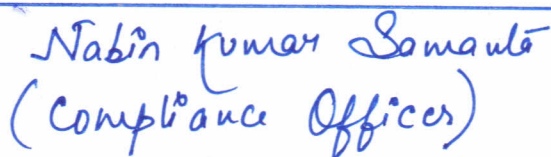 Nabin Kumar Samanta
(Compliance Officer)